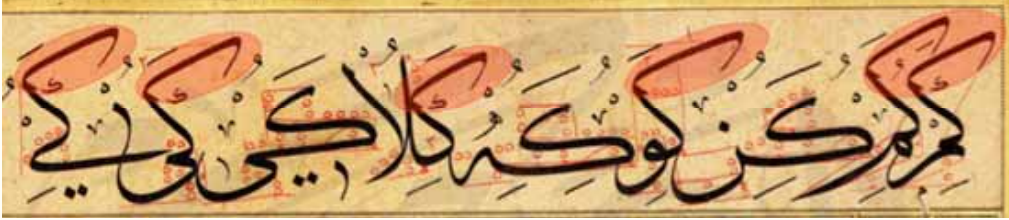 كم كم كن كو كه كلا كي كى كي